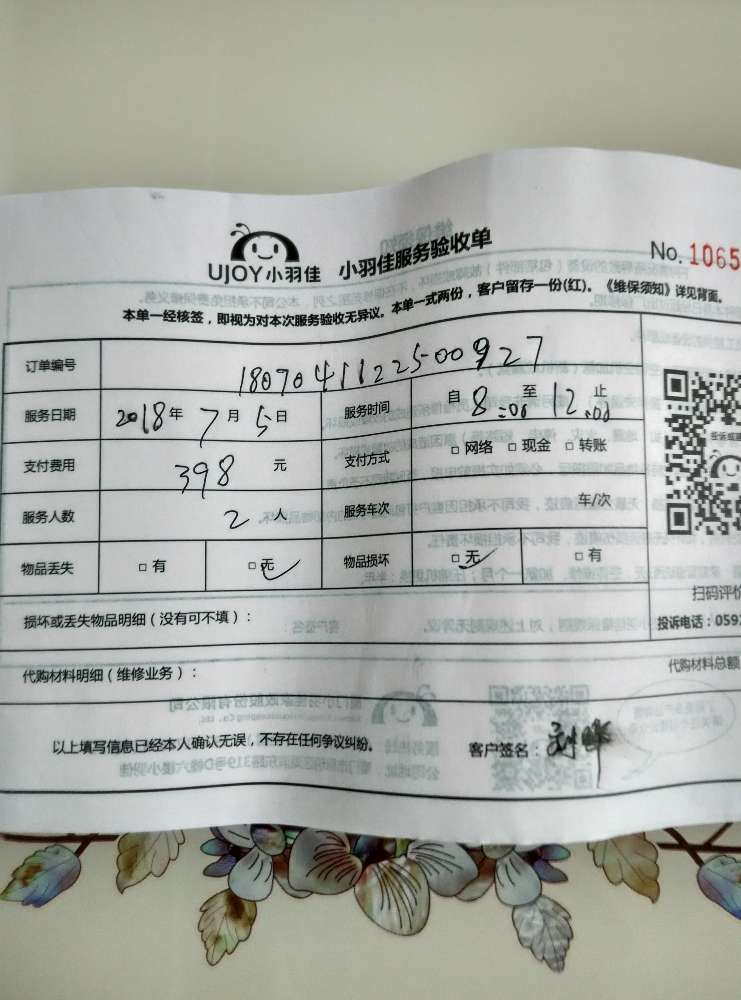 UJOY小羽佳 小羽佳服务验收单
No. 1065
本单一经核签，即视为对本次服务验收无异议。本单一式两份，客户留存一份(红)。《维保须知》详见背面。
订单编号 1807041122500927
服务日期 2018年7月5日 服务时间 自8:00至12:00止
支付费用 398元 支付方式 □网络 □现金 □转账
服务人数 2人 服务车次 车/次
物品丢失 □有 □无 物品损坏 □无 □有
扫码评价
损坏或丢失物品明细（没有可不填）：
投诉电话：059
代购材料明细（维修业务）：
代购材料总额
以上填写信息已经本人确认无误，不存在任何争议纠纷。 客户签名：刘